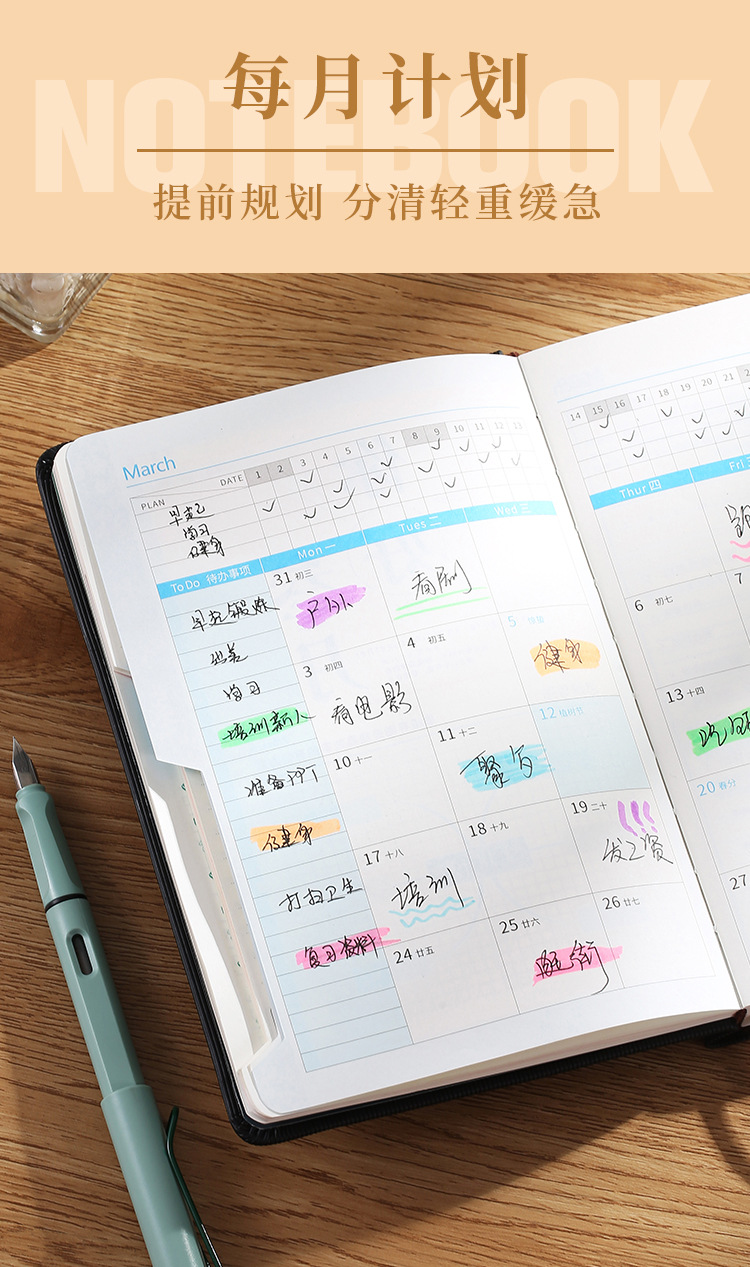 NOTEBOOK
每月计划
提前规划 分清轻重缓急
March
PLAN
DATE 1 2 3 4 5 6 7 8 9 10 11 12 13
早起
学习
健身
14 15 16 17 18 19 20 21
ToDo 待办事项
Mon 一
Tues 二
Wed 三
Thur 四
Fri
早起锻炼
学习
培训新人
准备PPT
健身
打扫卫生
复习资料
31 初三
看剧
3 初四
看电影
4 初五
5
健身
10 十一
11 十二
聚会
12 植树节
17 十八
培训
18 十九
19 二十
!!!
发工资
24 廿五
25 廿六
逛街
26 廿七
6 初七
7
13 十四
20 春分
27